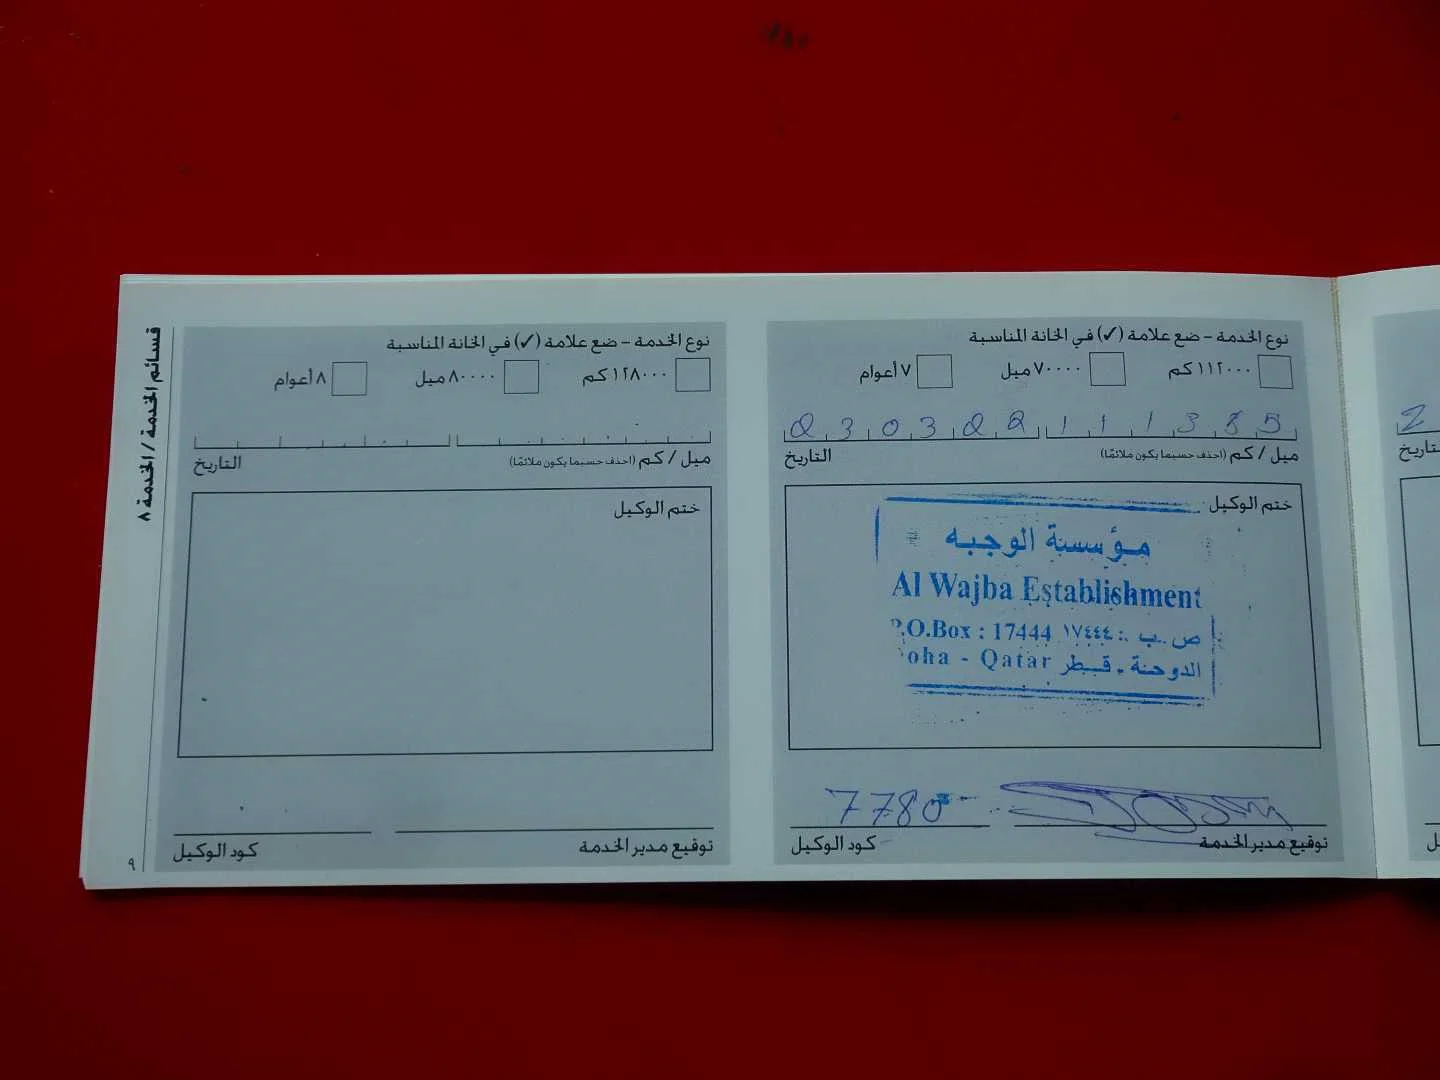 قسائم الخدمة / الخدمة ٨
نوع الخدمة - ضع علامة (✓) في الخانة المناسبة
١١٢٠٠٠ كم ٧٠٠٠٠ ميل ٧ أعوام
230322 111385
ميل / كم (احذف حسبما يكون ملائمًا) التاريخ
ختم الوكيل
مؤسسة الوجبه
Al Wajba Establishment
P.O.Box : 17444 ص .ب : ١٧٤٤٤
oha - Qatar الدوحة - قطر
7780
توقيع مدير الخدمة كود الوكيل
نوع الخدمة - ضع علامة (✓) في الخانة المناسبة
١٢٨٠٠٠ كم ٨٠٠٠٠ ميل ٨ أعوام
ميل / كم (احذف حسبما يكون ملائمًا) التاريخ
ختم الوكيل
توقيع مدير الخدمة كود الوكيل
٩